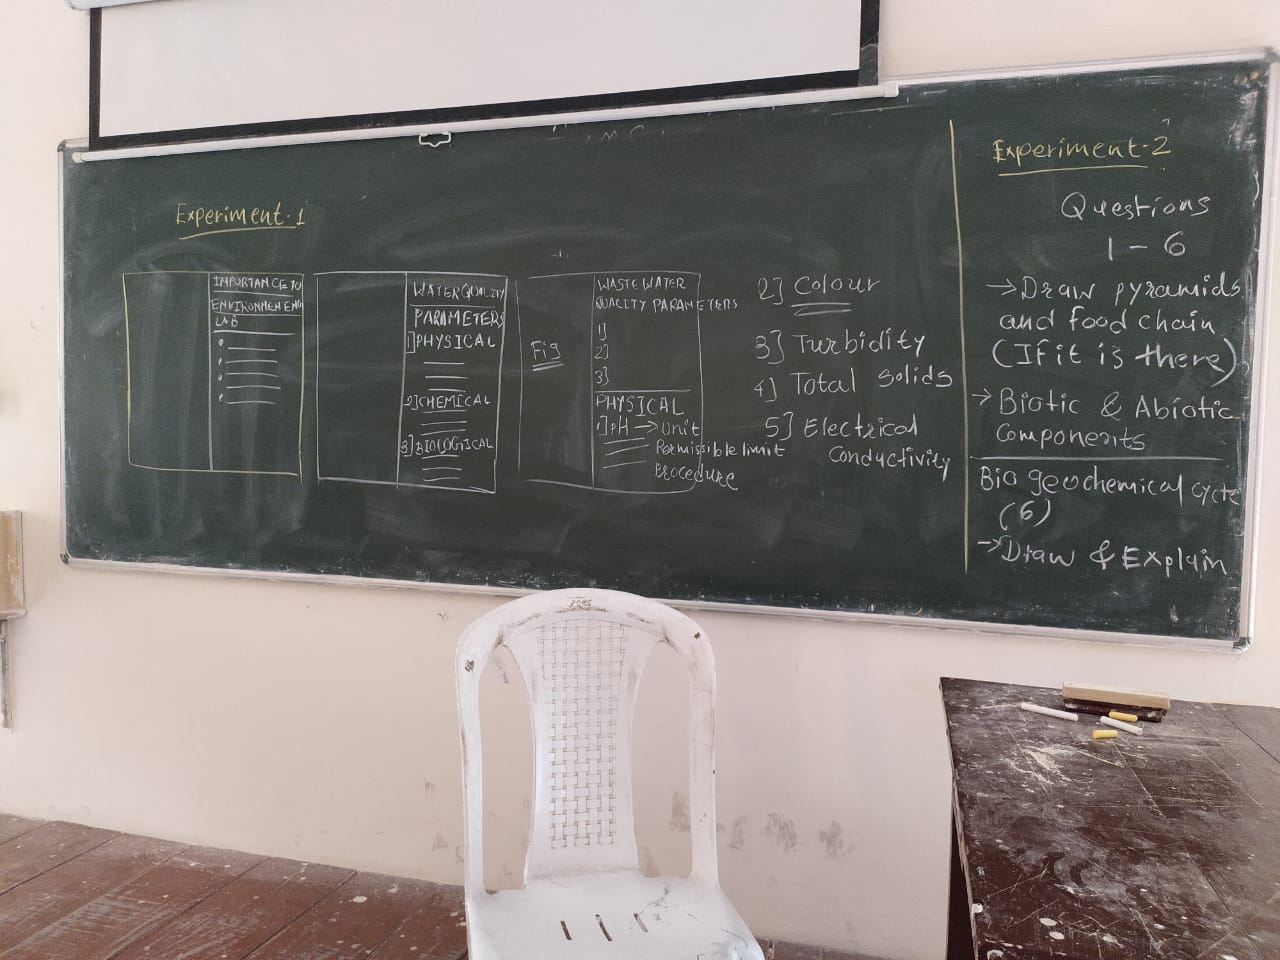 Experiment-1
IMPORTANCE TO
ENVIRONMEN ENG
LAB
WATER QUALITY
PARAMETERS
1] PHYSICAL
2] CHEMICAL
3] BIOLOGICAL
Fig
WASTE WATER
QUALITY PARAMETERS
1]
2]
3]
PHYSICAL
1] pH → Unit
Permissible limit
Procedure
2] Colour
3] Turbidity
4] Total solids
5] Electrical
conductivity
Experiment-2
Questions
1 - 6
→ Draw pyramids
and food chain
(If it is there)
→ Biotic & Abiotic
Components
Bio geochemical cycle
(6)
→ Draw & Explain